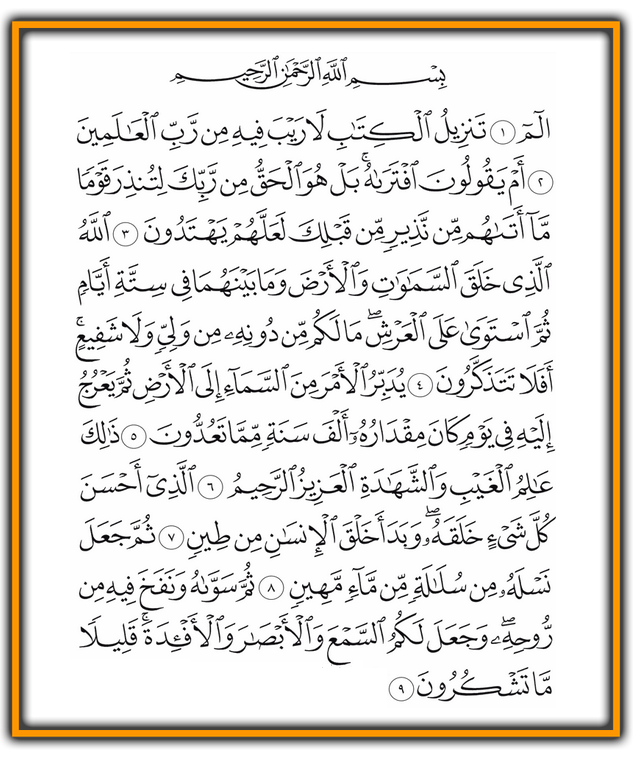 بِسْمِ ٱللَّهِ ٱلرَّحْمَٰنِ ٱلرَّحِيمِ
الٓمٓ ١ تَنزِيلُ ٱلْكِتَٰبِ لَا رَيْبَ فِيهِ مِن رَّبِّ ٱلْعَٰلَمِينَ
٢ أَمْ يَقُولُونَ ٱفْتَرَىٰهُ ۚ بَلْ هُوَ ٱلْحَقُّ مِن رَّبِّكَ لِتُنذِرَ قَوْمًا
مَّآ أَتَىٰهُم مِّن نَّذِيرٍ مِّن قَبْلِكَ لَعَلَّهُمْ يَهْتَدُونَ ٣ ٱللَّهُ
ٱلَّذِى خَلَقَ ٱلسَّمَٰوَٰتِ وَٱلْأَرْضَ وَمَا بَيْنَهُمَا فِى سِتَّةِ أَيَّامٍ
ثُمَّ ٱسْتَوَىٰ عَلَى ٱلْعَرْشِ ۖ مَا لَكُم مِّن دُونِهِۦ مِن وَلِىٍّ وَلَا شَفِيعٍ ۚ
أَفَلَا تَتَذَكَّرُونَ ٤ يُدَبِّرُ ٱلْأَمْرَ مِنَ ٱلسَّمَآءِ إِلَى ٱلْأَرْضِ ثُمَّ يَعْرُجُ
إِلَيْهِ فِى يَوْمٍ كَانَ مِقْدَارُهُۥٓ أَلْفَ سَنَةٍ مِّمَّا تَعُدُّونَ ٥ ذَٰلِكَ
عَٰلِمُ ٱلْغَيْبِ وَٱلشَّهَٰدَةِ ٱلْعَزِيزُ ٱلرَّحِيمُ ٦ ٱلَّذِىٓ أَحْسَنَ
كُلَّ شَىْءٍ خَلَقَهُۥ ۖ وَبَدَأَ خَلْقَ ٱلْإِنسَٰنِ مِن طِينٍ ٧ ثُمَّ جَعَلَ
نَسْلَهُۥ مِن سُلَٰلَةٍ مِّن مَّآءٍ مَّهِينٍ ٨ ثُمَّ سَوَّىٰهُ وَنَفَخَ فِيهِ مِن
رُّوحِهِۦ ۖ وَجَعَلَ لَكُمُ ٱلسَّمْعَ وَٱلْأَبْصَٰرَ وَٱلْأَفْـِٔدَةَ ۚ قَلِيلًا
مَّا تَشْكُرُونَ ٩